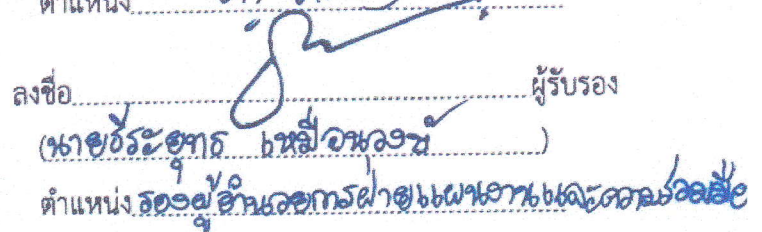 ตำแหน่ง
ลงชื่อ ผู้รับรอง
(นายธีระยุทธ เหมือนวงษ์ )
ตำแหน่ง รองผู้อำนวยการฝ่ายแผนงานและความร่วมมือ